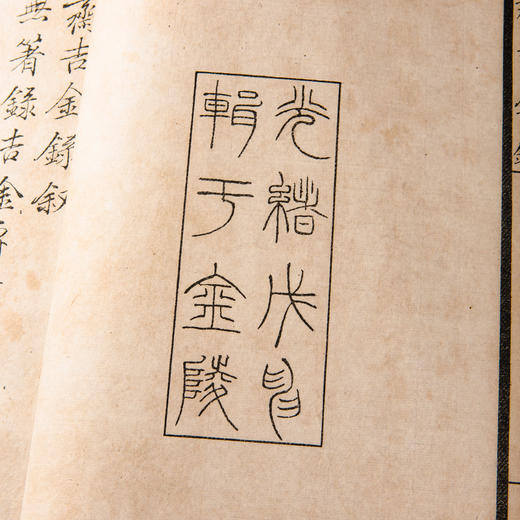 光緒戊申
輯于金陵
齋吉金錄敘
無著錄吉金